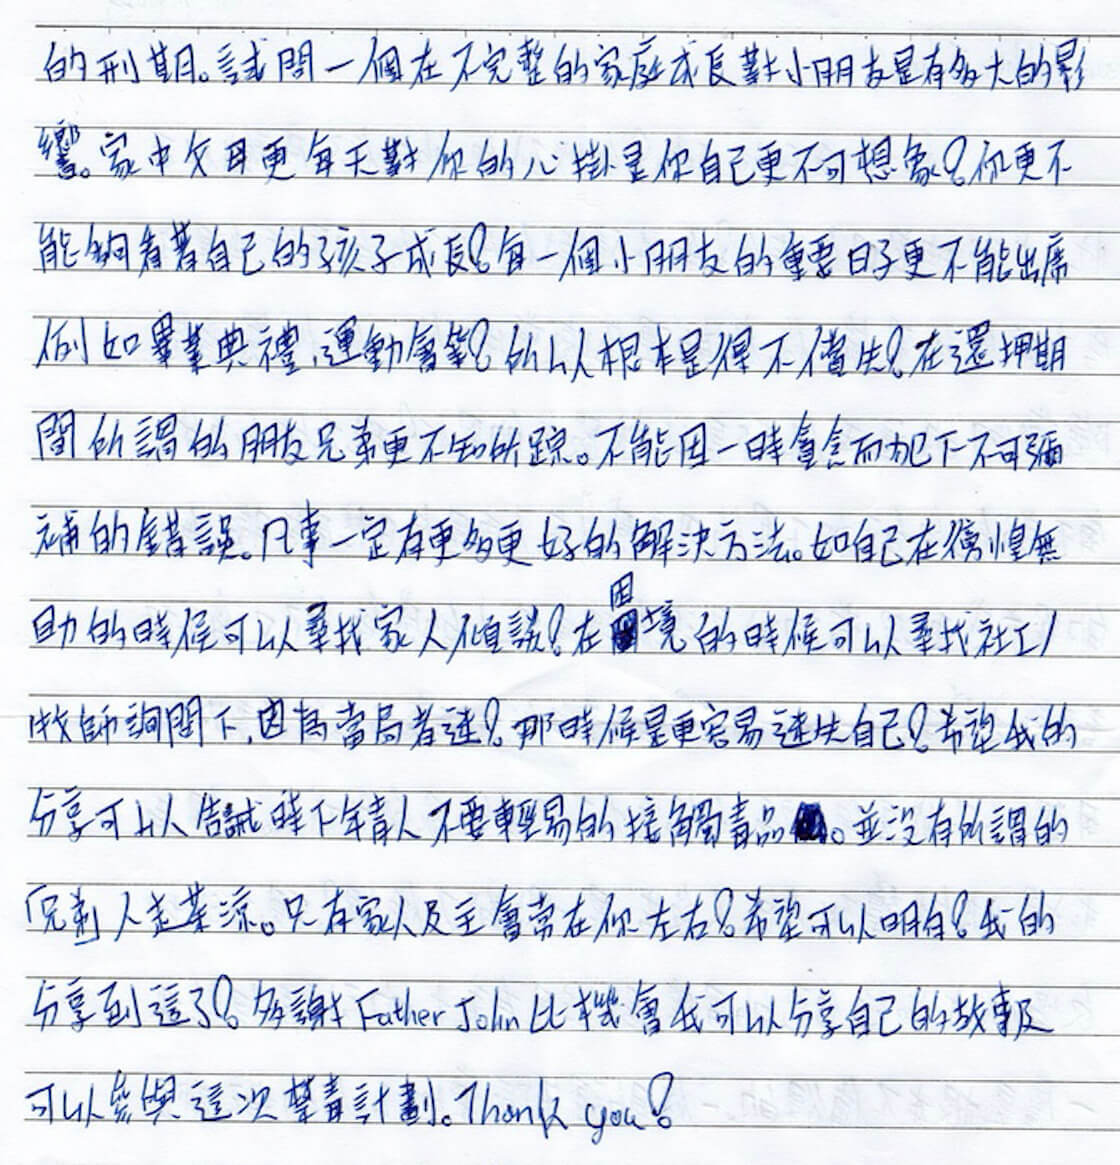 的刑期。試問一個在不完整的家庭成長對小朋友是有多大的影
響。家中父母更每天對你的心掛是你自己更不可想象!你更不
能夠看著自己的孩子成長!每一個小朋友的重要日子更不能出席
例如畢業典禮,運動會等!所以根本是得不償失!在還押期
間所謂的朋友兄弟更不知所蹤。不能因一時貪念而犯下不可彌
補的錯誤。凡事一定有更多更好的解決方法。如自己在徬惶無
助的時候可以尋找家人傾談!在困境的時候可以尋找社工/
牧師詢問下,因為當局者迷!那時候是更容易迷失自己!希望我的
分享可以告誡時下年青人不要輕易的接觸毒品。並沒有所謂的
「兄弟」人走茶涼。只有家人及主會常在你左右!希望可以明白!我的
分享到這了!多謝Father John比機會我可以分享自己的故事及
可以參與這次禁毒計劃。Thank you!